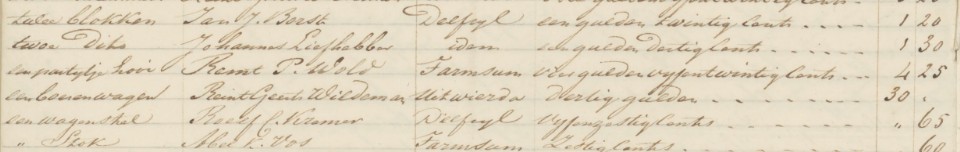 twee blokken Jan J. Borst Delfzyl een gulden twintig Cents 1 20
twee Dito Johannes Liefhebber idem een gulden Dertig Cents 1 30
een partytje hooi Remt P. Wold Farmsum vier gulden vyfentwintig Cents 4 25
een boerenwagen Reint Geerts Wildeman Uitwierda Dertig gulden 30 "
een wagenskel Roelf C. Kramer Delfzyl Vyfenzestig Cents " 65
" Stok Abel E. Vos Farmsum Zestig Cents " 60